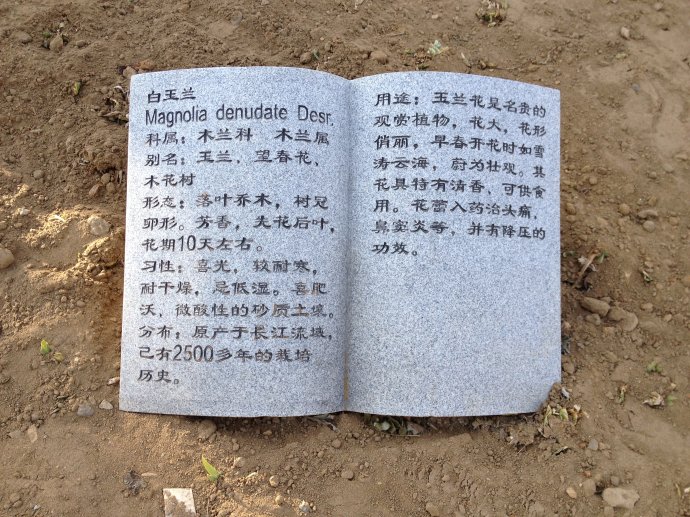 白玉兰
Magnolia denudate Desr.
科属：木兰科 木兰属
别名：玉兰，望春花，
木花树
形态：落叶乔木，树冠
卵形。芳香，先花后叶，
花期10天左右。
习性：喜光，较耐寒，
耐干燥，忌低湿。喜肥
沃，微酸性的砂质土壤。
分布：原产于长江流域，
已有2500多年的栽培
历史。
用途：玉兰花是名贵的
观赏植物，花大，花形
俏丽，早春开花时如雪
涛云海，蔚为壮观。其
花具特有清香，可供食
用。花蕾入药治头痛，
鼻窦炎等，并有降压的
功效。